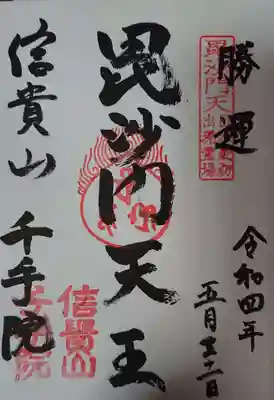 勝運
令和四年
五月三日
毘沙門天王
信貴山 千手院
毘沙門天
信貴山
千手院